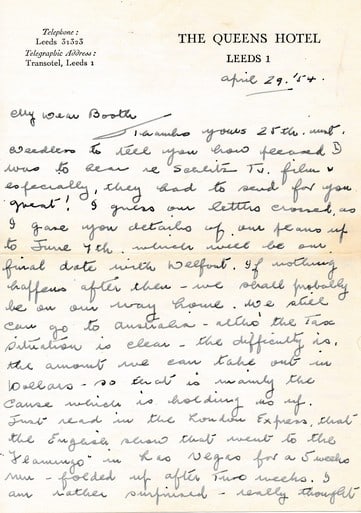 Telephone:
Leeds 31323
Telegraphic Address:
Transotel, Leeds 1
THE QUEENS HOTEL
LEEDS 1
April 29. '54.
My Dear Booth
Thanks yours 25th. inst.
Needless to tell you how pleased I
was to hear re Seclitz Tv. film &
especially, they had to send for you
great! I guess our letters crossed, as
I gave you details of our plans up
to June 7th. which will be our
final date with Delfont. If nothing
happens after then - we shall probably
be on our way home. We still
can go to Australia - altho' the Tax
situation is clear - the difficulty is,
the amount we can take out in
Dollars - so that is mainly the
cause which is holding us up.
Just read in the London Express, that
the English show that went to the
"Flamingo" in Las Vegas for a 5 weeks
run - folded up after Two weeks. I
am rather surprised - really thought